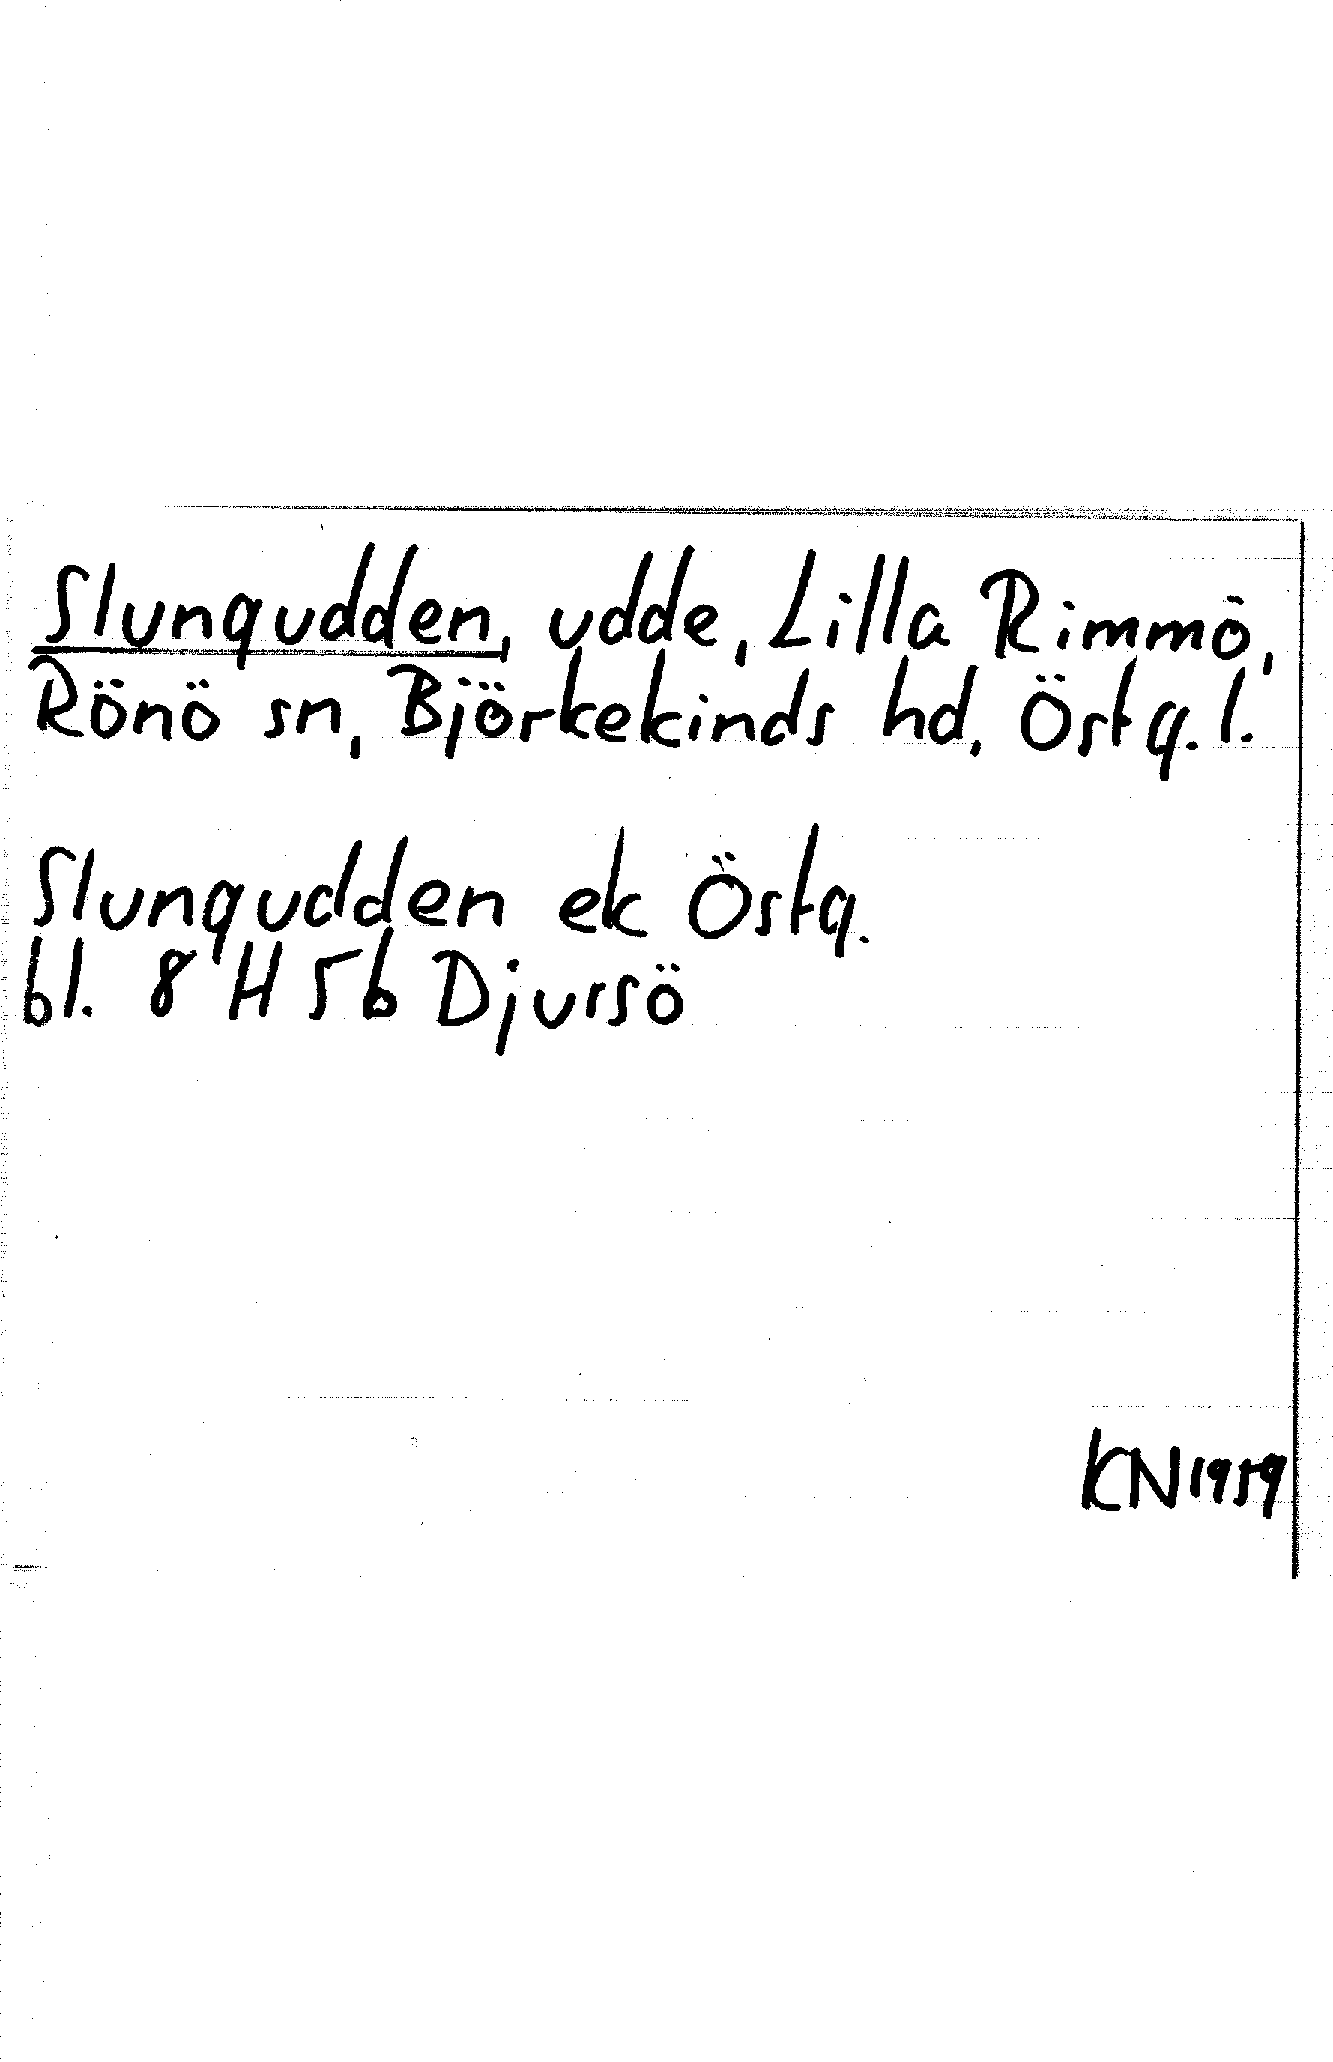 Slungudden, udde, Lilla Rimmö,
Rönö sn, Björkekinds hd, Östg. l.
Slungudden ek Östg.
bl. 8 H 5 b Djursö
KN 1959